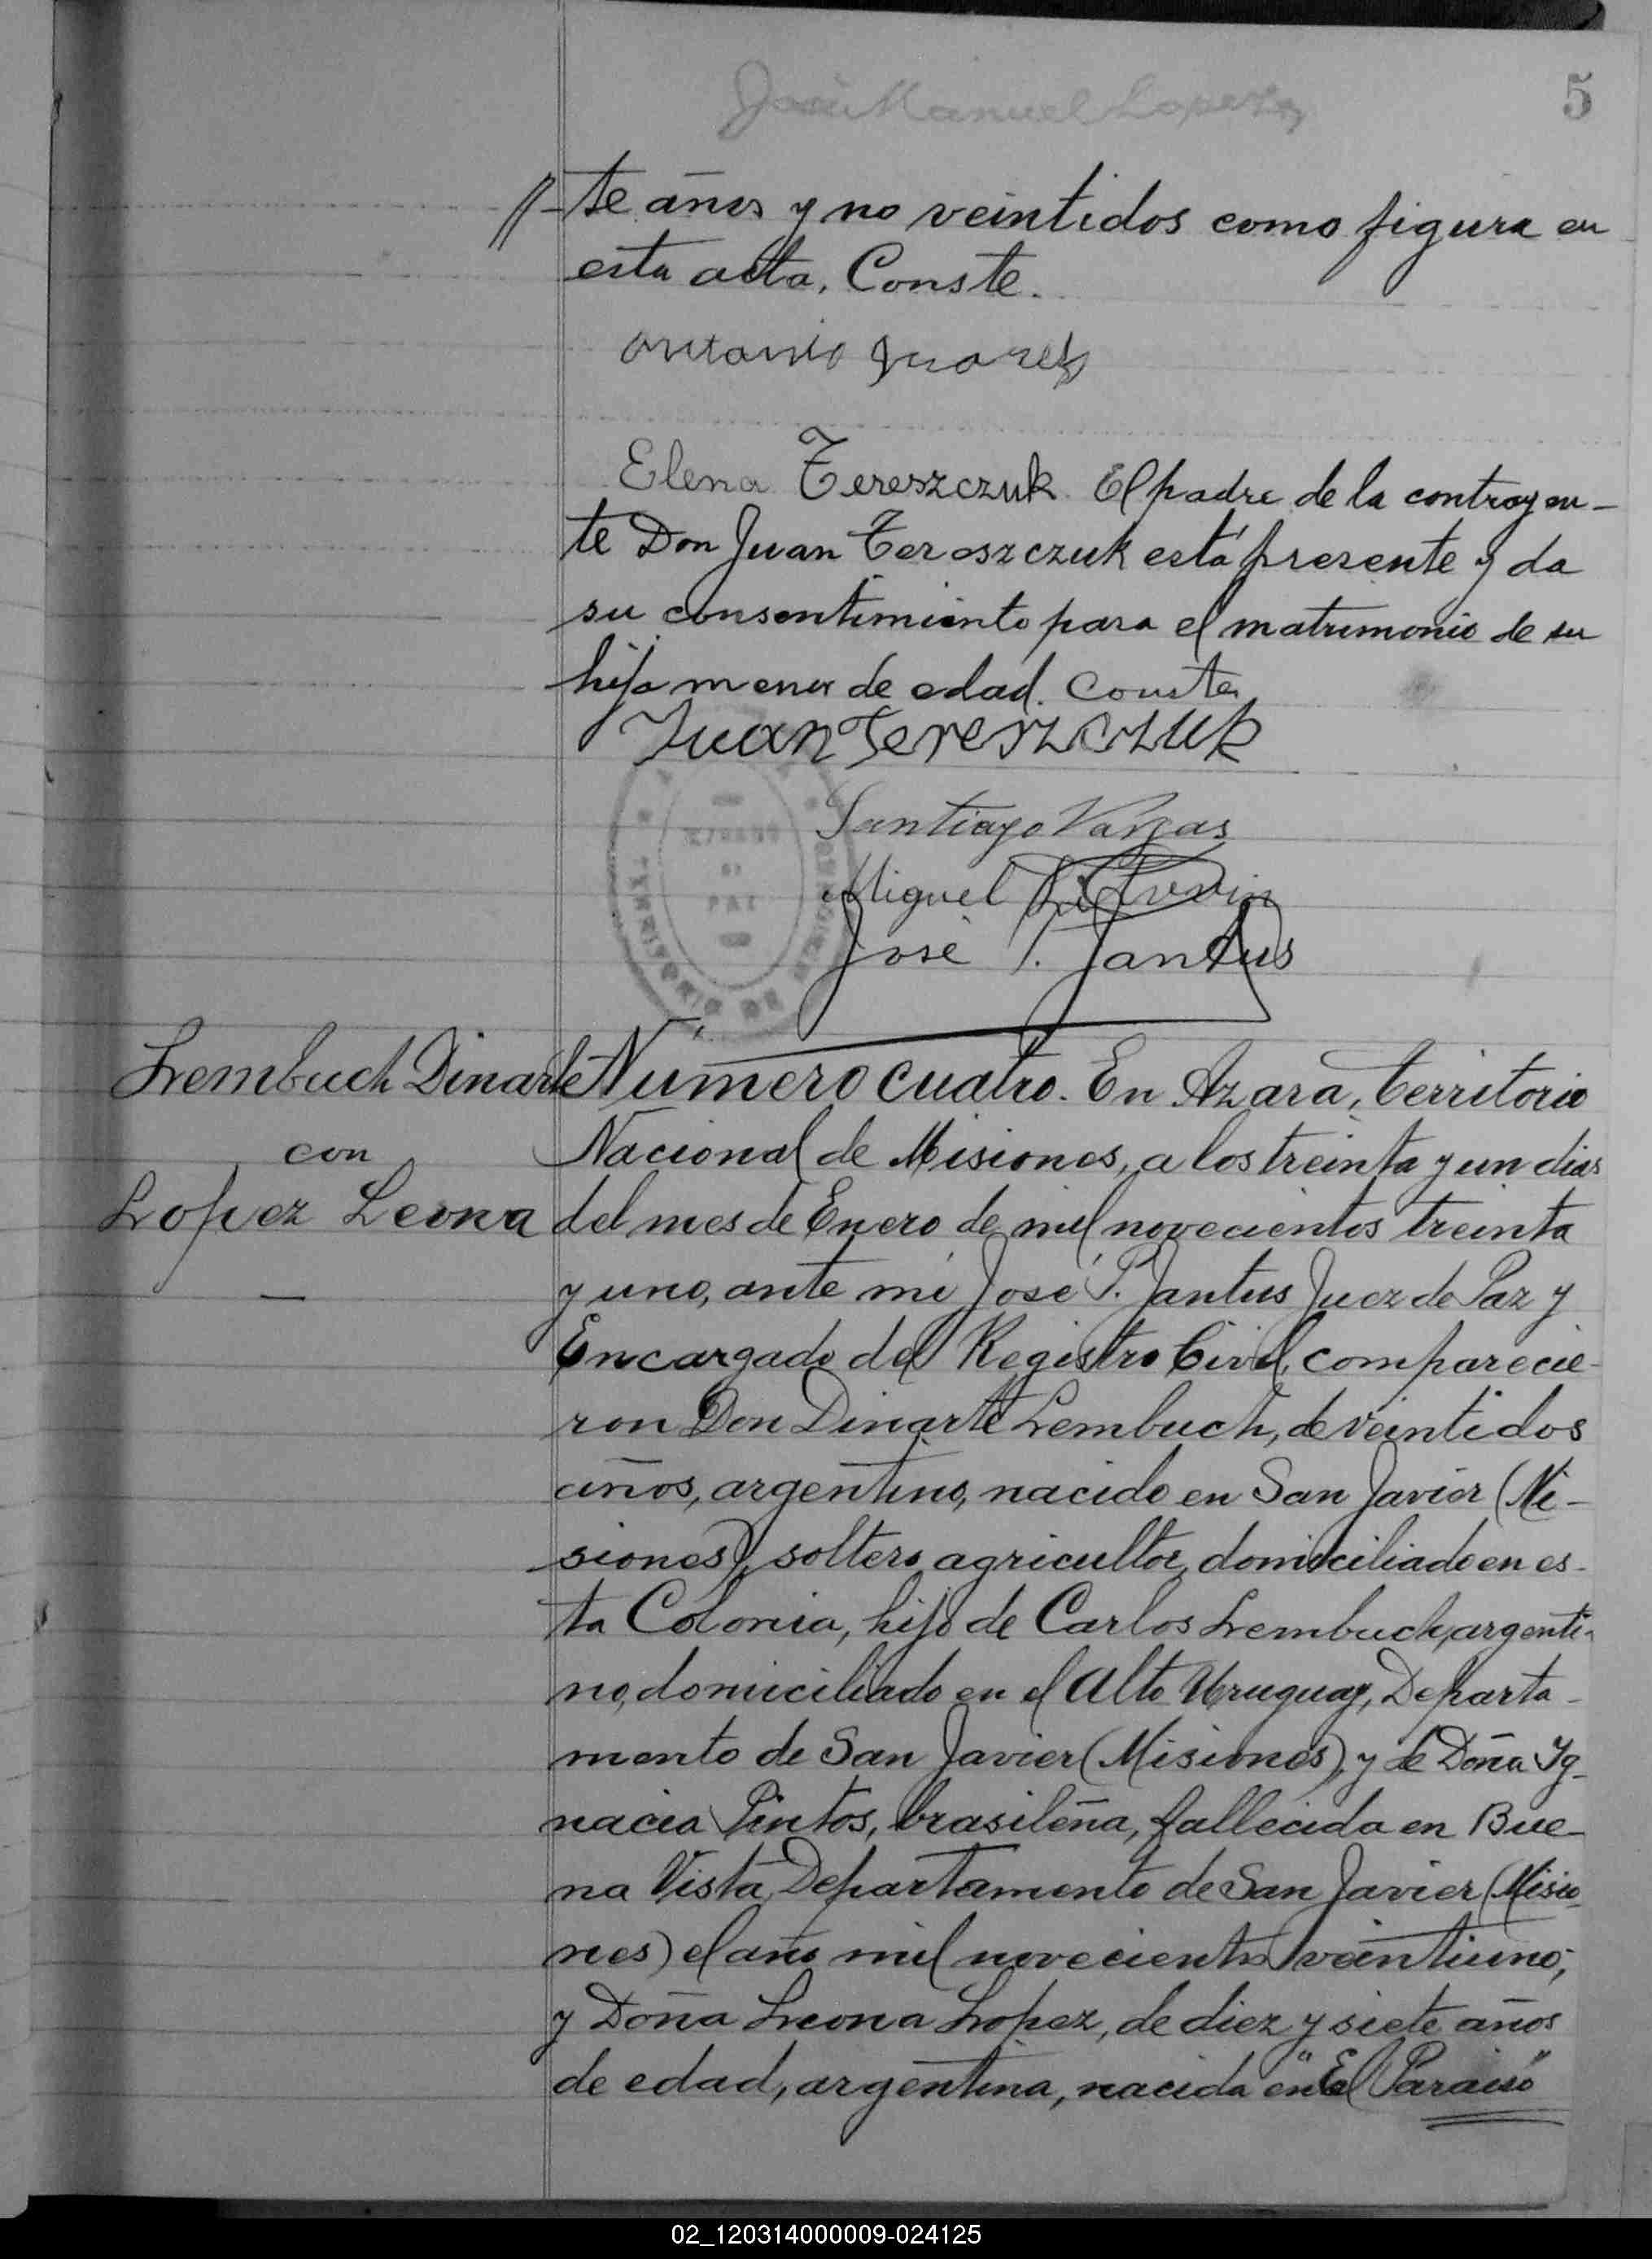 José Manuel Lopez
5
//-te años y no veintidos como figura en
esta acta. Conste.
Antonio Juarez
Elena Tereszczuk. El padre de la contrayen-
te Don Juan Tereszczuk está presente y da
su consentimiento para el matrimonio de su
hija menor de edad. Conste
Juan Tereszczuk
Santiago Vargas
Miguel
José P. Jantus
JUZGADO
DE
PAZ
TERRITORIO DE
Lembuch Dinarte
con
Lopez Leona
—
Número cuatro. En Azara, Territorio
Nacional de Misiones, a los treinta y un dias
del mes de Enero de mil novecientos treinta
y uno, ante mi José P. Jantus Juez de Paz y
Encargado del Registro Civil, comparecie-
ron Don Dinarte Lembuch, de veintidos
años, argentino, nacido en San Javier (Mi-
siones), soltero agricultor, domiciliado en es-
ta Colonia, hijo de Carlos Lembuch, argenti-
no, domiciliado en el Alto Uruguay, Departa-
mento de San Javier (Misiones), y de Doña Yg-
nacia Pintos, brasileña, fallecida en Bue-
na Vista, Departamento de San Javier (Misio-
nes) el año mil novecientos veintiuno;
y Doña Leona Lopez, de diez y siete años
de edad, argentina, nacida en "El Paraiso"
02_120314000009-024125